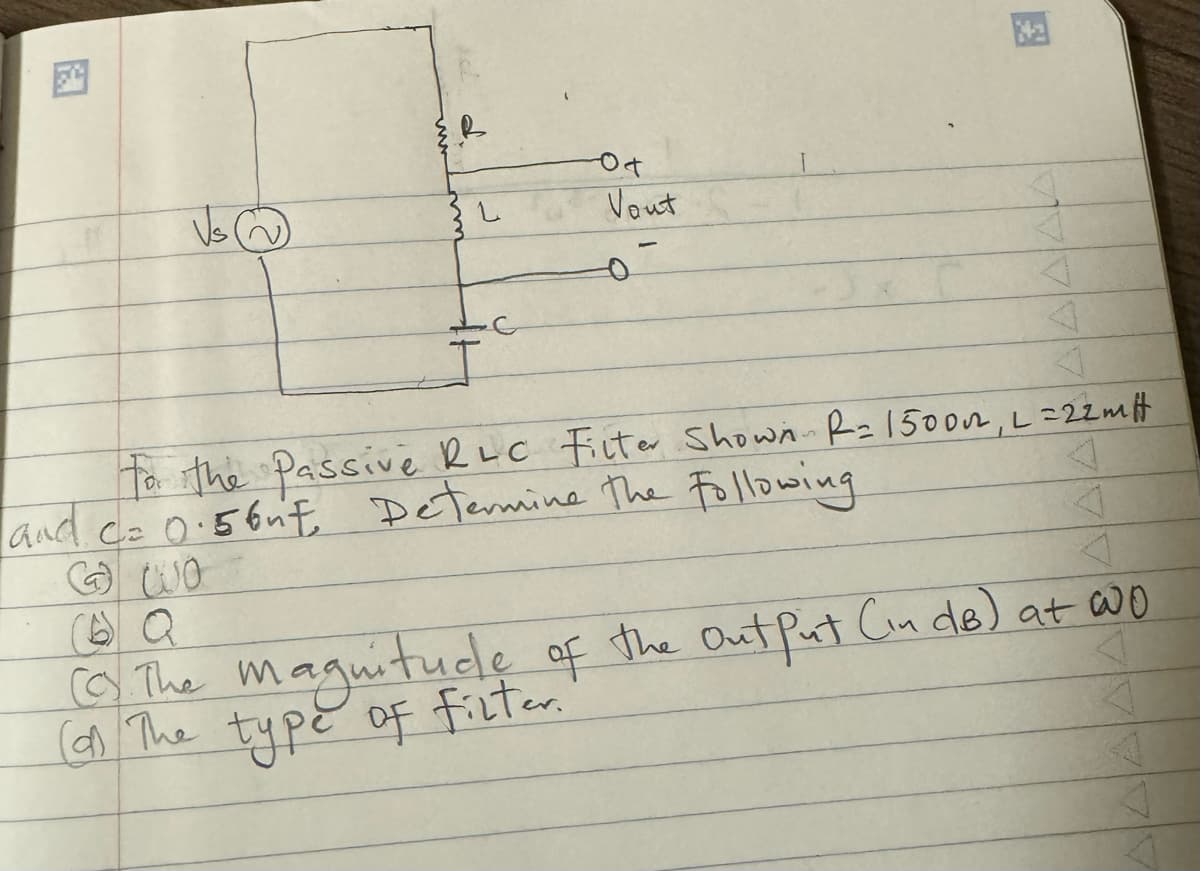 R
O+
L
Vout
Vs
-
C
For the Passive RLC Filter Shown. R=1500Ω, L=22mH
and C= 0.56nF, Determine the Following
(a) ω0
(b) Q
(c) The magnitude of the output (in dB) at ω0
(d) The type of filter.